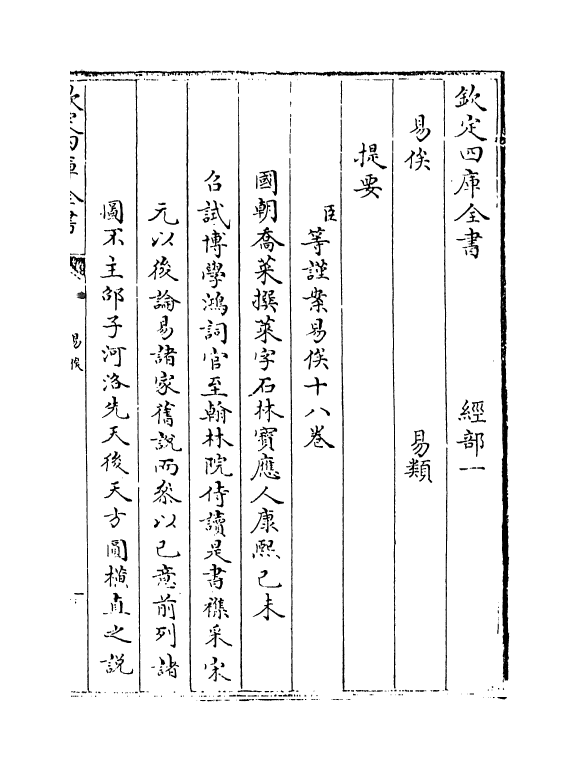 欽定四庫全書　經部一
易俟　易類
提要
臣等謹案易俟十八卷
國朝喬萊撰萊字石林寶應人康熙己未
召試博學鴻詞官至翰林院侍讀是書襍采宋
元以後論易諸家舊說而叅以已意前列諸
圖不主邵子河洛先天後天方圓橫直之說
欽定四庫全書
易俟
一